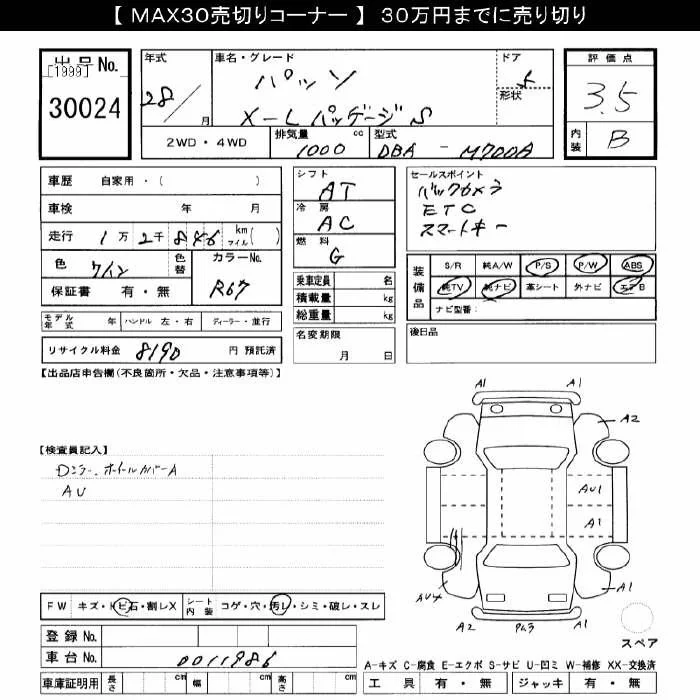 【 MAX30売切りコーナー 】 30万円までに売り切り
出品No.
[1999]
30024
年式
28/
月
車名・グレード
パッソ
X-Lパッケージ S
ドア
5
形状
評価点
3.5
内装
B
2WD・4WD
排気量 cc
1000
型式
DBA - M700A
車歴 自家用・( )
車検 年 月
走行 1万 2千 846 km マイル( )
色 ワイン
色替
カラーNo.
R67
保証書 有・無
モデル年式 年 ハンドル 左・右 ディーラー・並行
リサイクル料金 8190 円 預託済
シフト
AT
冷房
AC
燃料
G
乗車定員 名
積載量 kg
総重量 kg
名変期限
月 日
セールスポイント
バックカメラ
ETC
スマートキー
装備品
S/R 純A/W P/S P/W ABS
純TV 純ナビ 革シート 外ナビ エアB
ナビ型番:
後日品
【出品店申告欄(不良箇所・欠品・注意事項等)】
【検査員記入】
Dミラー、ホイールカバーA
AU
FW キズ・トビ石・割レX
シート内装 コゲ・穴・汚レ・シミ・破レ・スレ
登録 No.
車台 No. 0011986
車庫証明用 長さ cm 幅 cm 高さ cm
A1 A1
A2
AU1
A1
AU4
A1
A2 A1
スペア
A-キズ C-腐食 E-エクボ S-サビ U-凹ミ W-補修 XX-交換済
工具 有・無 ジャッキ 有・無